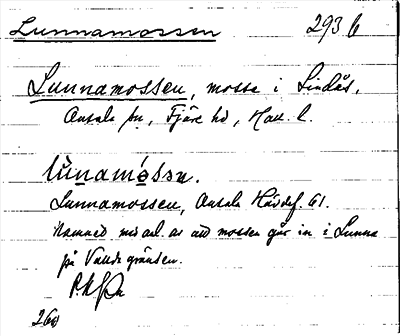 Lunnamossen 293 b
Lunnamossen, mosse i Lindås,
Onsala sn, Fjäre hd, Hall. l.
lùnamóssn.
Lunnamossen, Onsala Häradsf. 61.
Namnet av att mossen går in i Lunna
på Vallda gränsen.
260